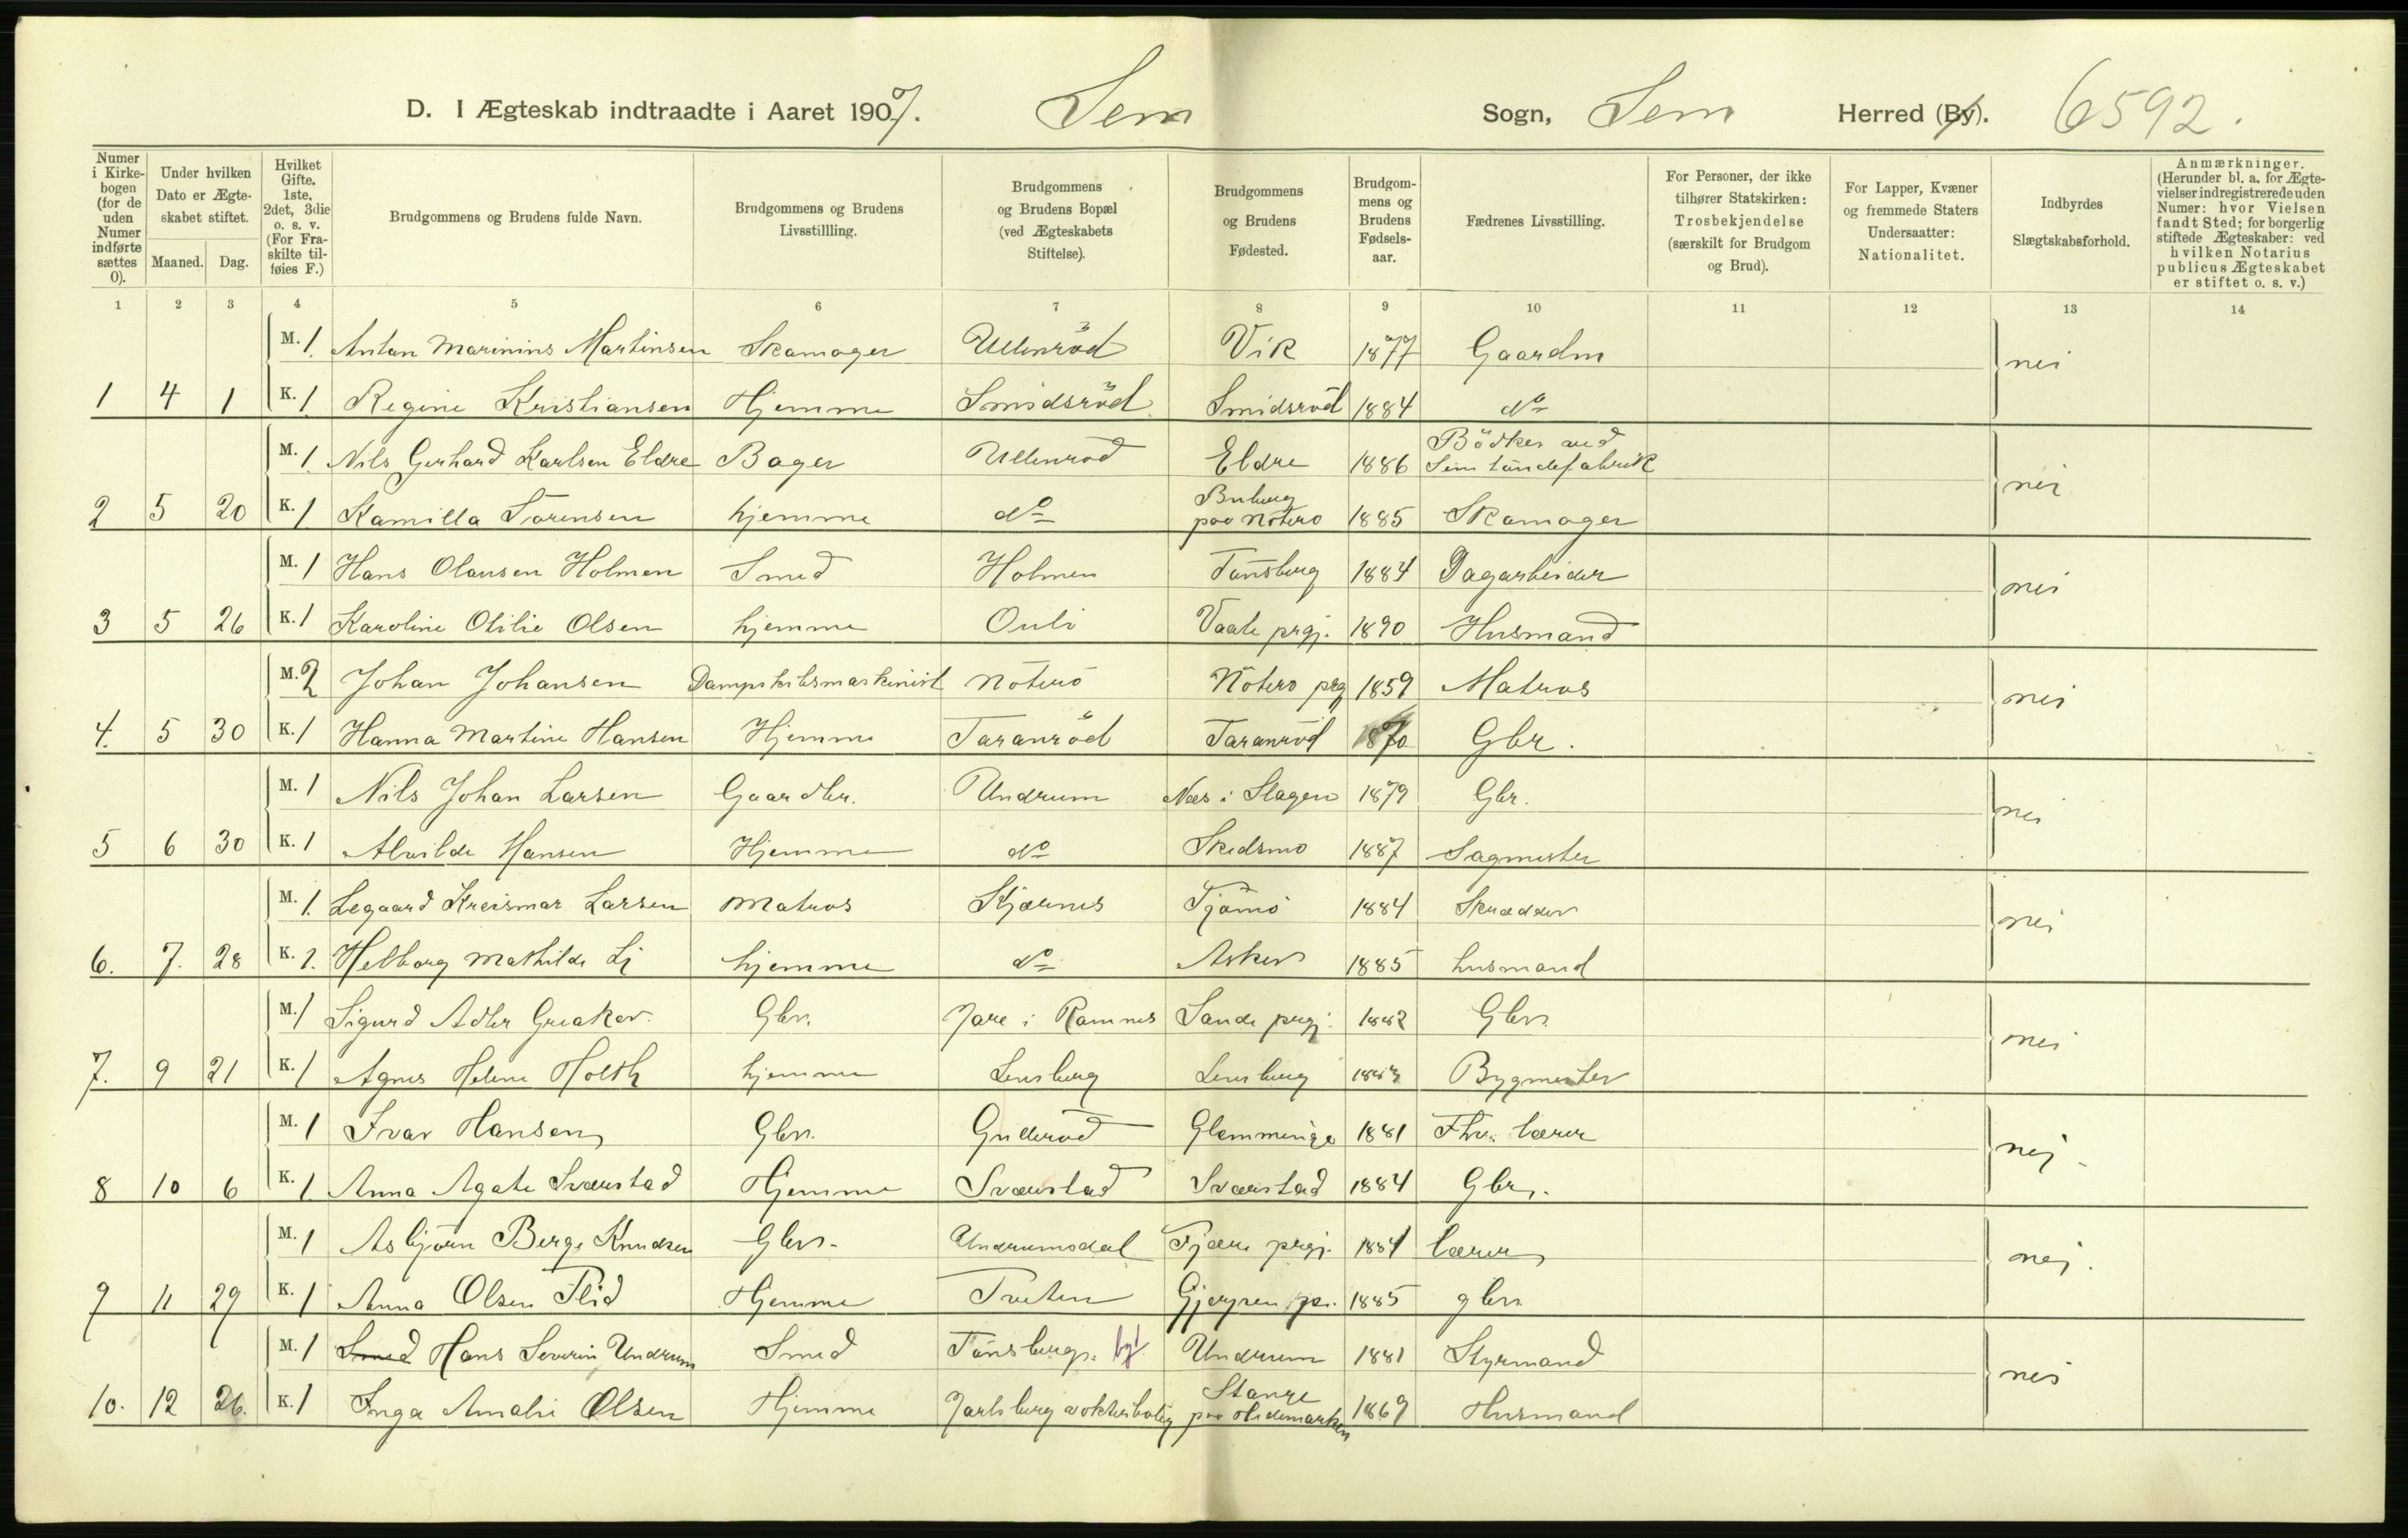 D. I Ægteskab indtraadte i Aaret 1907. Sem Sogn, Sem Herred (By). 6592.
Numer i Kirkebogen (for de uden Numer indførte sættes 0).
Under hvilken Dato er Ægteskabet stiftet.
Maaned. Dag.
Hvilket Gifte, 1ste, 2det, 3die o. s. v. (For Fraskilte tilføies F.)
Brudgommens og Brudens fulde Navn.
Brudgommens og Brudens Livsstillling.
Brudgommens og Brudens Bopæl (ved Ægteskabets Stiftelse).
Brudgommens og Brudens Fødested.
Brudgommens og Brudens Fødselsaar.
Fædrenes Livsstilling.
For Personer, der ikke tilhører Statskirken: Trosbekjendelse (særskilt for Brudgom og Brud).
For Lapper, Kvæner og fremmede Staters Undersaatter: Nationalitet.
Indbyrdes Slægtskabsforhold.
Anmærkninger. (Herunder bl. a. for Ægtevielser indregistrerede uden Numer: hvor Vielsen fandt Sted; for borgerlig stiftede Ægteskaber: ved hvilken Notarius publicus Ægteskabet er stiftet o. s. v.)
1 2 3 4 5 6 7 8 9 10 11 12 13 14
M. 1. Anton Marinius Martinsen Skomager Ullenröd Vik 1877 Gaardm nei
1 4 1 K. 1 Regine Kristiansen Hjemme Smidsröd Smidsröd 1884 do
M. 1. Nils Gerhard Karlsen Eldre Bager Ullenrød Eldre 1886 Bödker ved Sem töndefabrik nei
2 5 20 K. 1 Kamilla Sörensen hjemme do Buberg paa Nöterö 1885 Skomager
M. 1 Hans Olausen Holmen Smed Holmen Tönsberg 1884 Dagarbeider nei
3 5 26 K. 1 Karoline Otilie Olsen hjemme Auli Vaale prgj. 1890 Husmand
M. 2 Johan Johansen Dampskibsmaskinist Nöterö Nöterö prg 1859 Matros nei
4. 5 30 K. 1 Hanna Martine Hansen Hjemme Taranröd Taranröd 1870 Gbr.
M. 1 Nils Johan Larsen Gaardbr. Undrum Næs i Slagen 1879 Gbr. nei
5 6 30 K. 1 Alvilde Hansen Hjemme do Skedsmo 1887 Sagmester
M. 1. Legaard Kreismar Larsen Matros Kjærnes Tjömö 1884 Skrædder nei
6. 7. 28 K. 1. Helborg Mathilde Li hjemme do Asker 1885 husmand
M. 1 Sigurd Adler Greaker. Gbr. Jare i Ramnes Sande prgj. 1882 Gbr. nei
7. 9 21 K. 1 Agnes Helene Holth hjemme Lensberg Lensberg Bygmester
M. 1 Ivar Hansen Gbr. Gulleröd Glemminge 1881 Fhv. lærer nej.
8 10 6 K. 1 Anna Agate Sværstad Hjemme Sværstad Sværstad 1884 Gbr.
M. 1 Asbjörn Berge Knudsen Gbr. Undrumsdal Fjære prgj. 1884 lærer nej.
9 11 29 K. 1 Anna Olsen Flid Hjemme Tveten Gjerpen pr. 1885 gbr.
M. 1 Smed Hans Severin Undrum Smed Tönsberg. by! Undrum 1881 Styrmand nei
10. 12 26. K. 1 Inga Amalie Olsen Hjemme Jarlsberg vokterbolig Stange paa Hedemarken 1869 Husmand